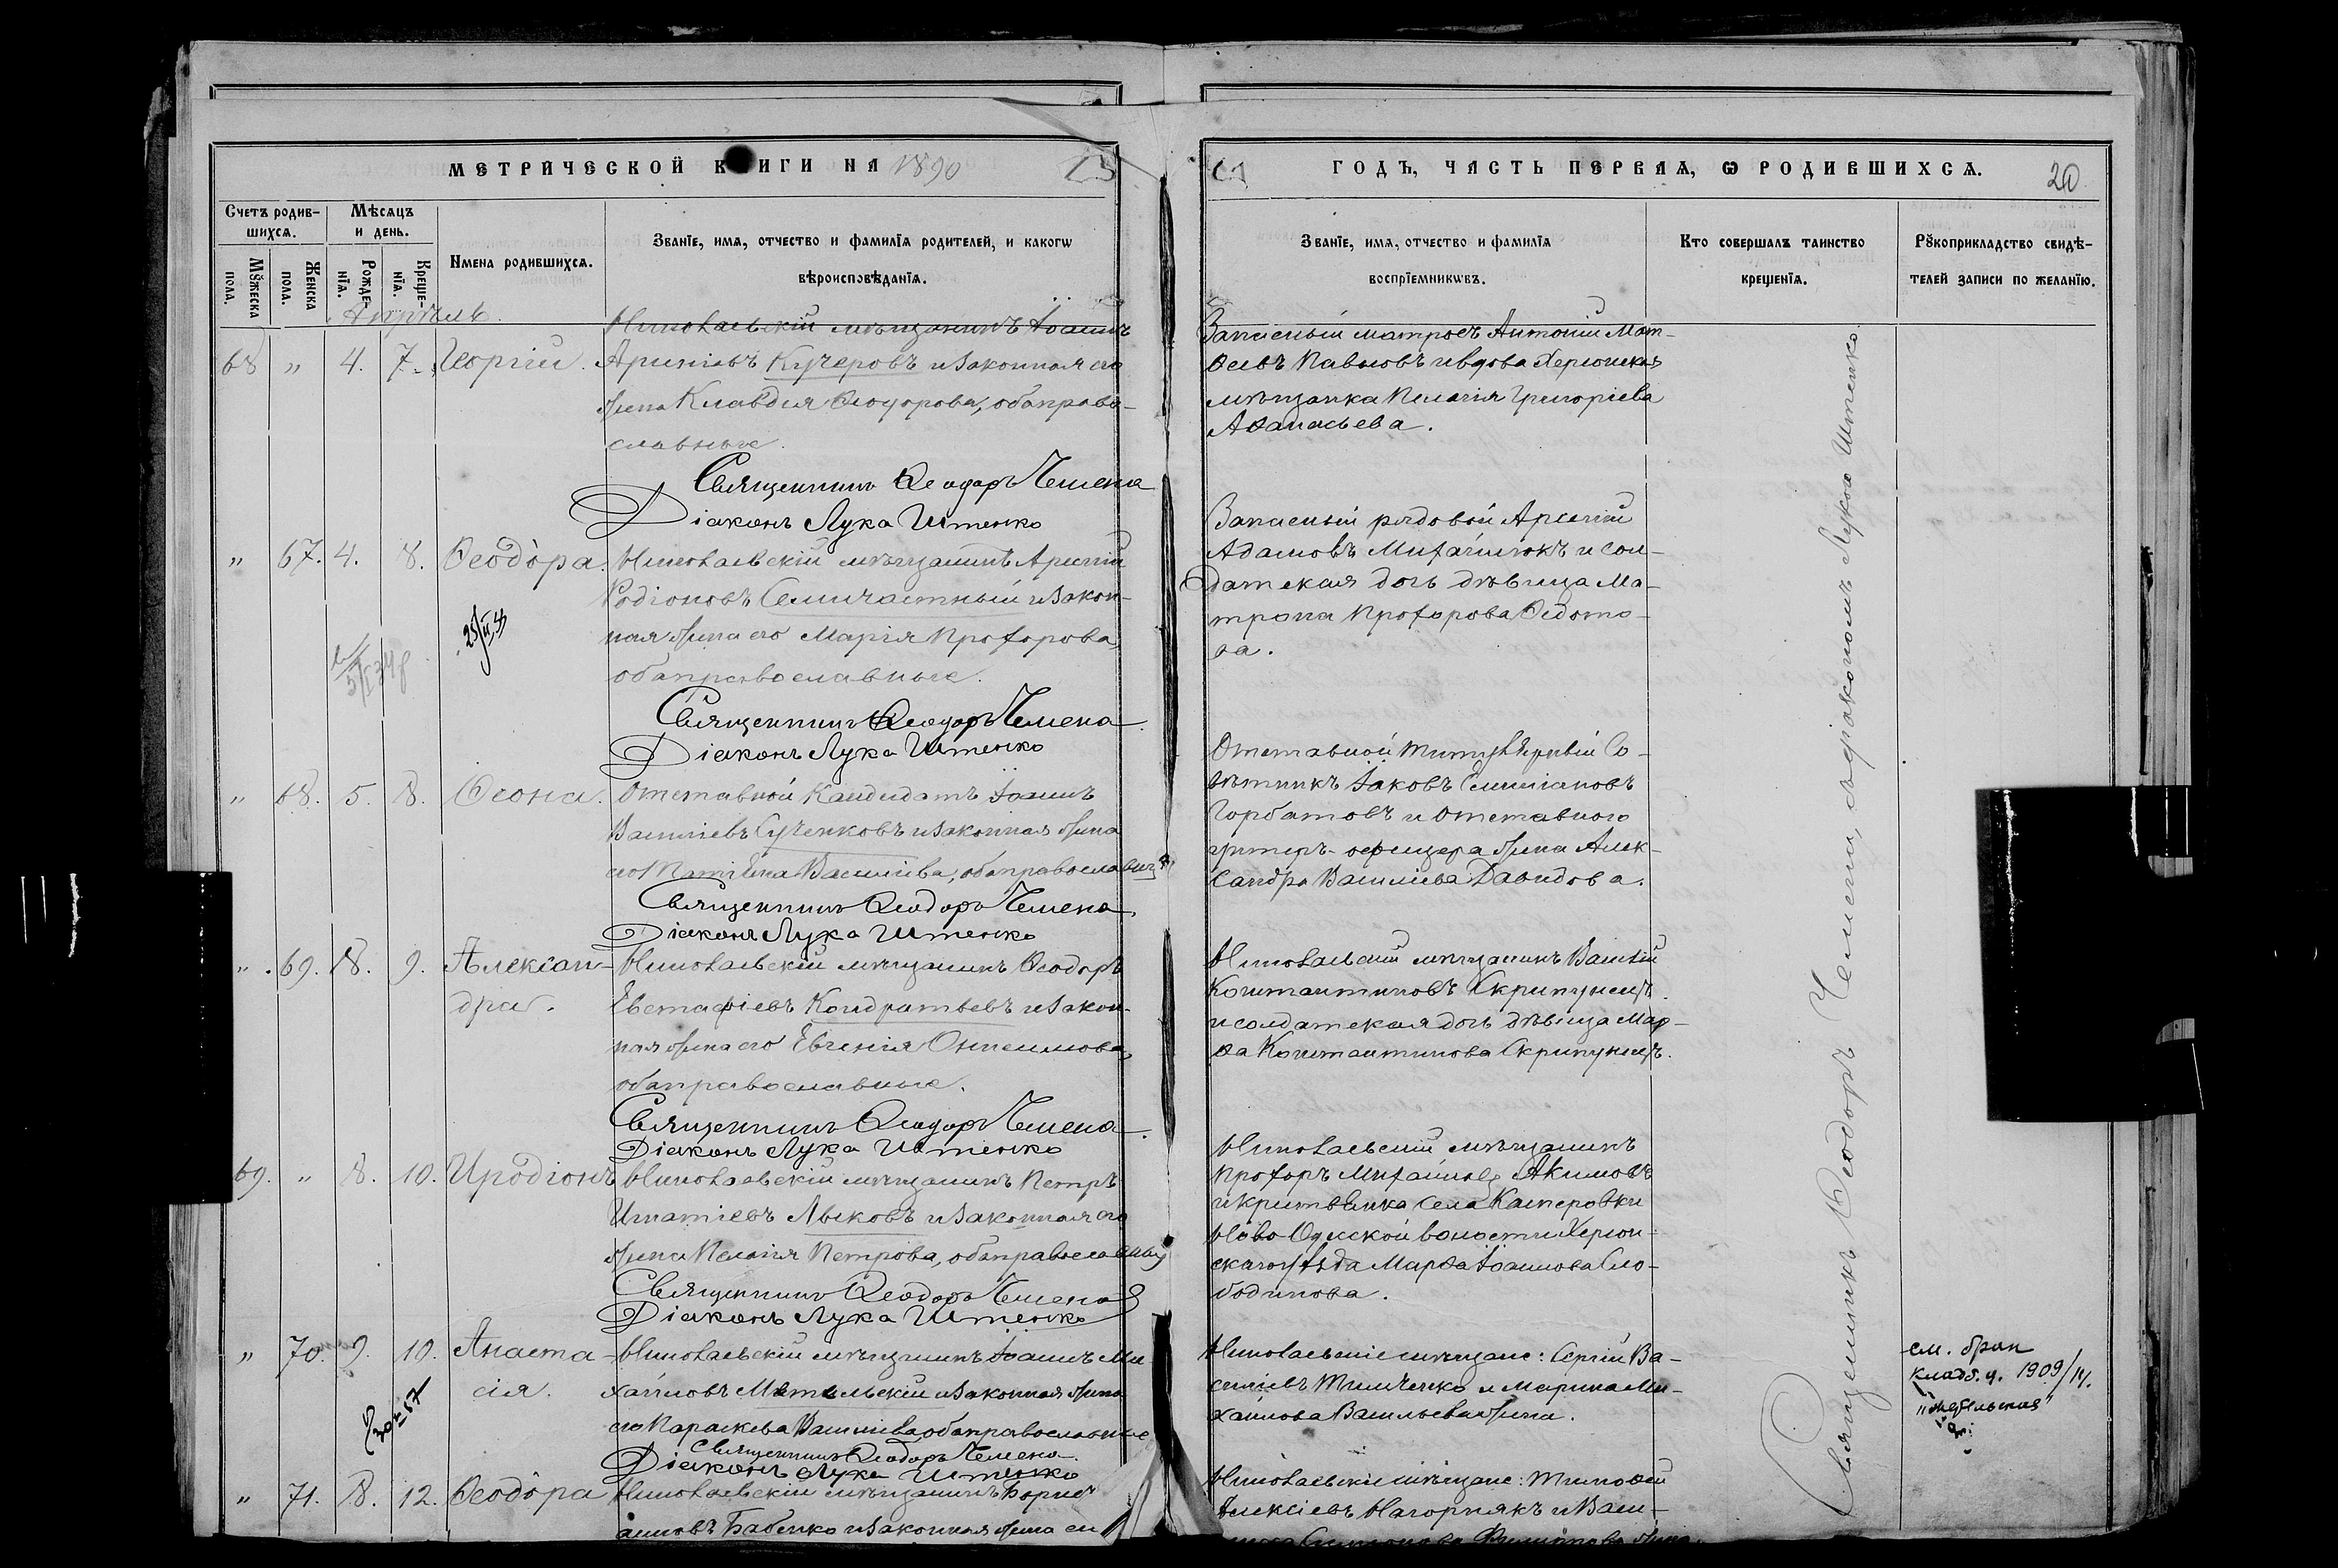 МЕТРИЧЕСКОЙ К ИГИ НА 1890
ГОДЪ, ЧАСТЬ ПЕРВАѦ, Ѡ РОДИВШИХСѦ. 20
Счетъ родив-
шихсѧ.
Мѣсѧцъ
и день.
Мꙋжеска
пола.
Женска
пола.
Рожде-
нїѧ.
Креще-
нїѧ.
Имена родившихсѧ.
Званїе, имѧ, отчество и фамилїѧ родителей, и какогѡ
вѣроисповѣданїѧ.
Званїе, имѧ, отчество и фамилїѧ
воспрїемникѡвъ.
Кто совершалъ таинство
крещенїѧ.
Рꙋкоприкладство свидѣ-
телей записи по желанїю.
Апрѣль
68 „ 4. 7. Георгій.
Николаевскій мѣщанинъ Іоаннъ
Арсеніевъ Кучеровъ и законная его
жена Клавдія Ѳеодорова, оба право-
славные.
Священникъ Ѳеодоръ Чемена
Діаконъ Лука Штенко
Запасный матросъ Антоній Мат-
ѳеевъ Павловъ и вдова Херсонская
мѣщанка Пелагія Григоріева
Аѳанасьева.
„ 67. 4. 8. Ѳеодо́ра.
Николаевскій мѣщанинъ Арсеній
Родіоновъ Семичастный и закон-
ная жена его Марія Прохорова,
оба православные.
Священникъ Ѳеодоръ Чемена
Діаконъ Лука Штенко
Запасный рядовой Арсеній
Адамовъ Михальчокъ и сол-
датская дочь дѣвица Ма-
трона Прохорова Ѳедото-
ва.
„ 68. 5. 8. Ѳеона.
Отставной Кандидатъ Іоаннъ
Василіевъ Сученковъ и законная жена
его Татіана Василіева, оба православные
Священникъ Ѳеодоръ Чемена
Діаконъ Лука Штенко
Отставной Титулярный Со-
вѣтникъ Іаковъ Емиліановъ
Горбатовъ и отставного
унтеръ-офицера жена Алек-
сандра Василіева Давидова.
„ 69. 8. 9. Алексан-
дра.
Николаевскій мѣщанинъ Ѳеодоръ
Евстафіевъ Кондратьевъ и закон-
ная жена его Евгенія Онисимова,
оба православные.
Священникъ Ѳеодоръ Чемена
Діаконъ Лука Штенко
Николаевскій мѣщанинъ Василій
Константиновъ Скрипунецъ
и солдатская дочь дѣвица Мар-
ѳа Константинова Скрипунецъ.
69. „ 8. 10. Иродіонъ
Николаевскій мѣщанинъ Петръ
Игнатіевъ Лысковъ и законная его
жена Пелагія Петрова, оба православные
Священникъ Ѳеодоръ Чемена
Діаконъ Лука Штенко
Николаевскій мѣщанинъ
Прохоръ Михайловъ Акимовъ
и крестьянка села Касперовки
Ново-Одесской волости Херсон-
скаго уѣзда Марѳа Іоаннова Сло-
бодинова.
„ 70. 9. 10. Анаста-
сія.
Николаевскій мѣщанинъ Іоаннъ Ми-
хайловъ Метельскій и законная жена
его Параскева Василіева, оба православные
Священникъ Ѳеодоръ Чемена
Діаконъ Лука Штенко
Николаевскіе мѣщане: Сергій Ва-
силіевъ Тимченко и Марина Ми-
хайлова Васильева жена.
см. брак
кладб. ц. 1909/IV.
„ 71. 8. 12. Ѳеодо́ра
Николаевскій мѣщанинъ Борисъ
Бабенко и законная жена ег
Николаевскіе мѣщане: Тимоѳей
Алексіевъ Нагорнякъ и Васи-
Священникъ Ѳеодоръ Чемена, съ діакономъ Лукою Штенко